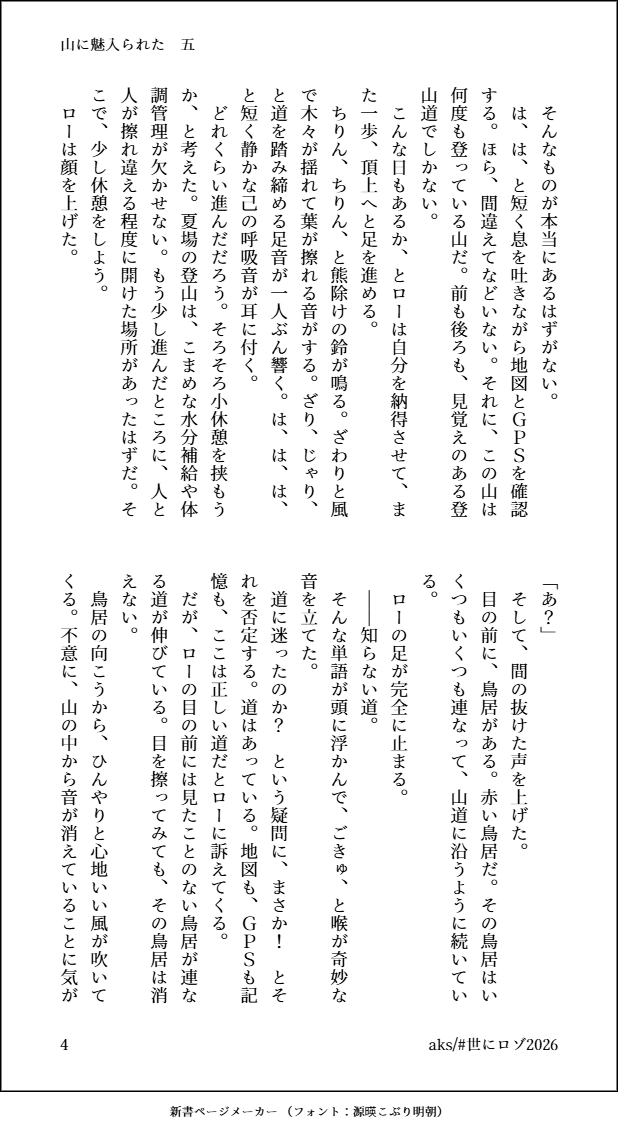 山に魅入られた　五
　そんなものが本当にあるはずがない。
　は、は、と短く息を吐きながら地図とＧＰＳを確認
する。ほら、間違えてなどいない。それに、この山は
何度も登っている山だ。前も後ろも、見覚えのある登
山道でしかない。
　こんな日もあるか、とローは自分を納得させて、ま
た一歩、頂上へと足を進める。
　ちりん、ちりん、と熊除けの鈴が鳴る。ざわりと風
で木々が揺れて葉が擦れる音がする。ざり、じゃり、
と道を踏み締める足音が一人ぶん響く。は、は、は、
と短く静かな己の呼吸音が耳に付く。
　どれくらい進んだだろう。そろそろ小休憩を挟もう
か、と考えた。夏場の登山は、こまめな水分補給や体
調管理が欠かせない。もう少し進んだところに、人と
人が擦れ違える程度に開けた場所があったはずだ。そ
こで、少し休憩をしよう。
　ローは顔を上げた。
「あ？」
　そして、間の抜けた声を上げた。
　目の前に、鳥居がある。赤い鳥居だ。その鳥居はい
くつもいくつも連なって、山道に沿うように続いてい
る。
　ローの足が完全に止まる。
　――知らない道。
　そんな単語が頭に浮かんで、ごきゅ、と喉が奇妙な
音を立てた。
　道に迷ったのか？　という疑問に、まさか！　とそ
れを否定する。道はあっている。地図も、ＧＰＳも記
憶も、ここは正しい道だとローに訴えてくる。
　だが、ローの目の前には見たことのない鳥居が連な
る道が伸びている。目を擦ってみても、その鳥居は消
えない。
　鳥居の向こうから、ひんやりと心地いい風が吹いて
くる。不意に、山の中から音が消えていることに気が
4
aks/#世にロゾ2026
新書ページメーカー （フォント：源暎こぶり明朝）